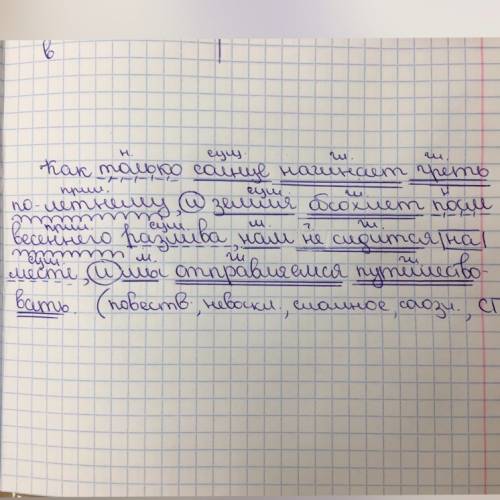 в
н. сущ. гл. гл.
Как только солнце начинает греть
прил. сущ. гл. н
по-летнему, и земля обсохнет посл
прил. сущ. м. ч. гл.
весеннего разлива, нам не сидится на
сущ. м. гл. гл.
месте, и мы отправляемся путешество-
вать. (повеств., невоскл., сложное, союзн., СП